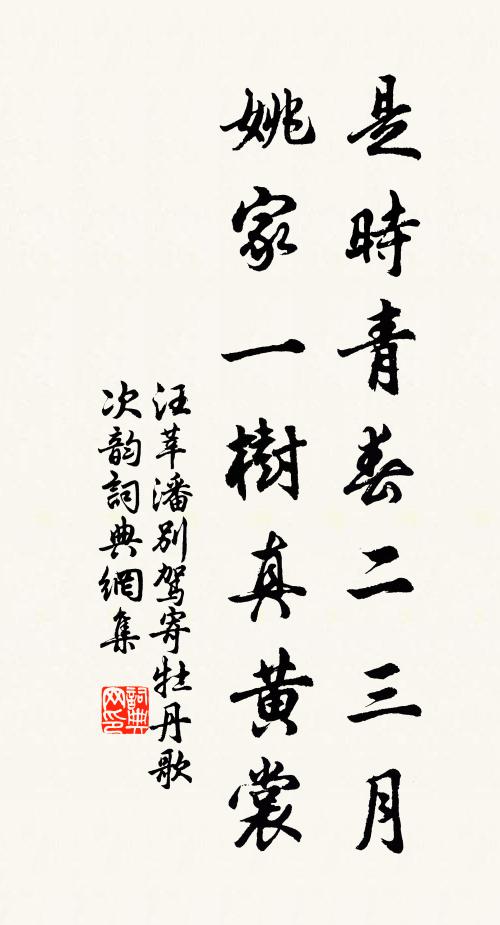 是時青春二三月
姚家一樹真黃裳
汪莘潘別駕寄牡丹歌
次韵詞典網集
詞典网印